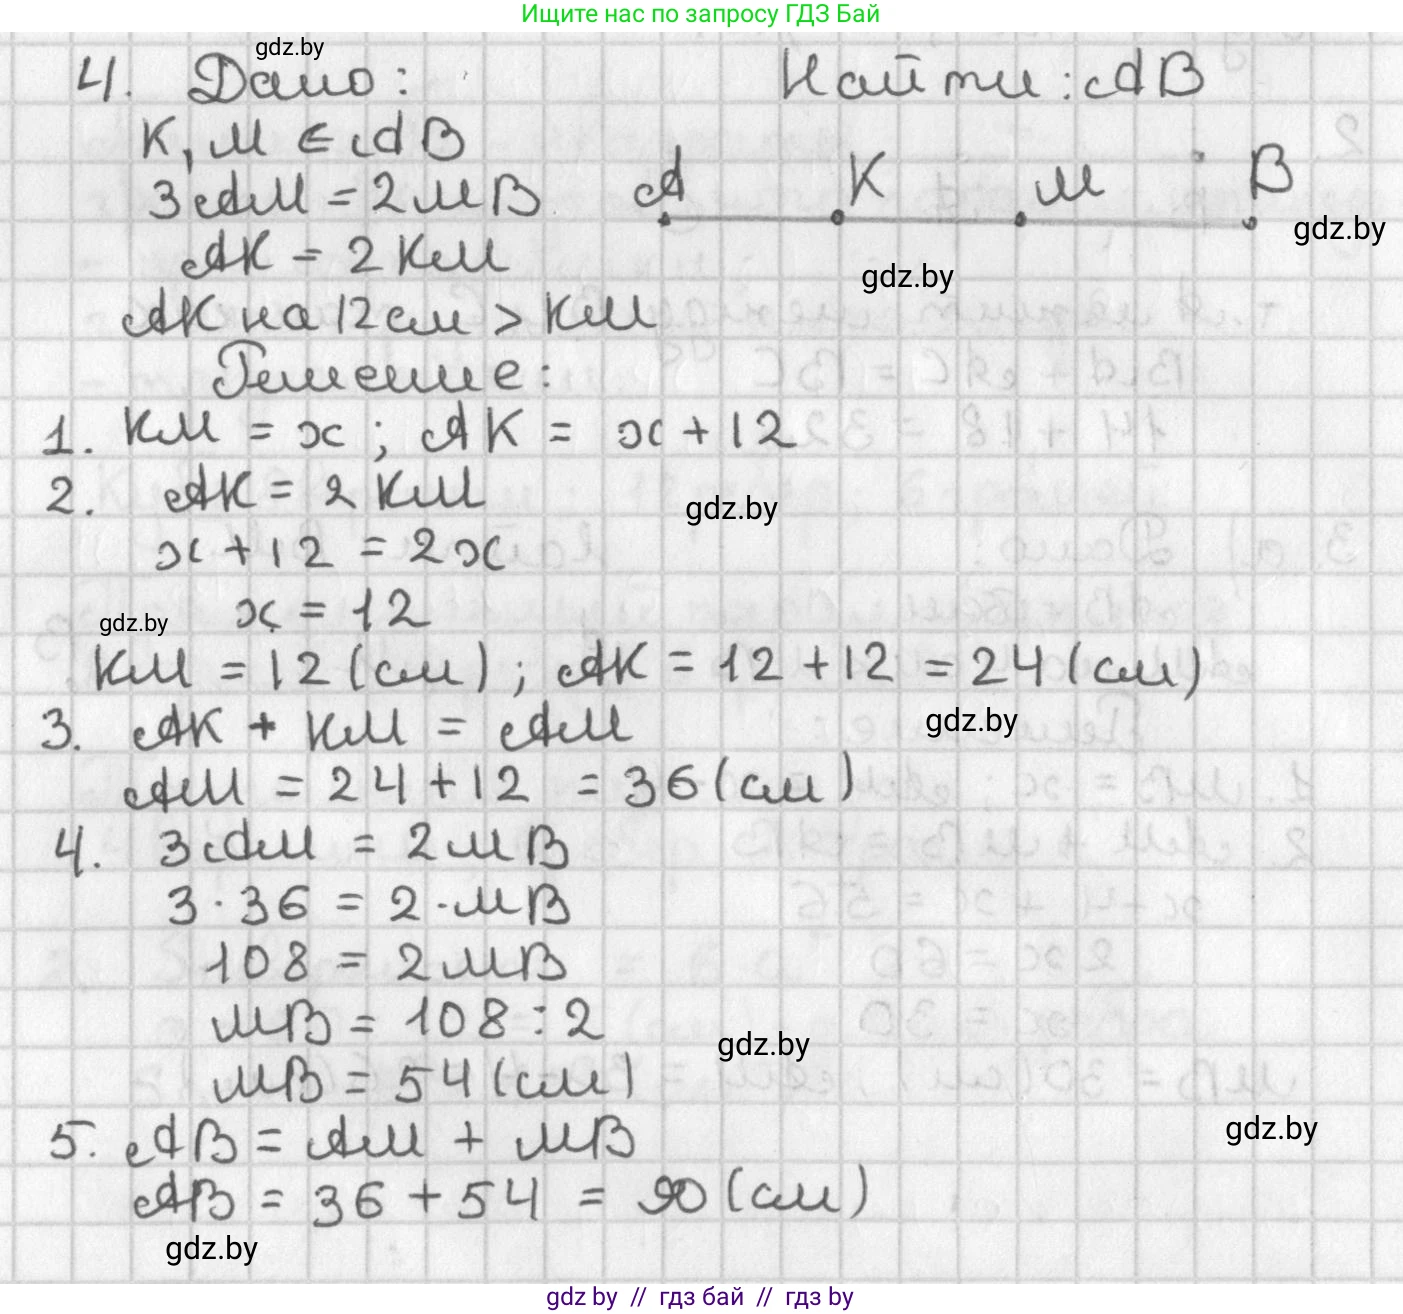 Ищите нас по запросу ГДЗ Бай
gdz.by
4. Дано: Найти: AB
K, M ∈ AB
A K M B
3AM = 2MB
gdz.by
AK = 2KM
gdz.by
AK на 12 см > KM
Решение:
1. KM = x ; AK = x + 12
2. AK = 2KM
gdz.by
x + 12 = 2x
x = 12
gdz.by
KM = 12 (см) ; AK = 12 + 12 = 24 (см)
3. AK + KM = AM
gdz.by
AM = 24 + 12 = 36 (см)
4. 3AM = 2MB
3 · 36 = 2 · MB
108 = 2MB
MB = 108 : 2
gdz.by
MB = 54 (см)
5. AB = AM + MB
gdz.by
AB = 36 + 54 = 90 (см)
gdz.by
gdz by // гдз бай // гдз by